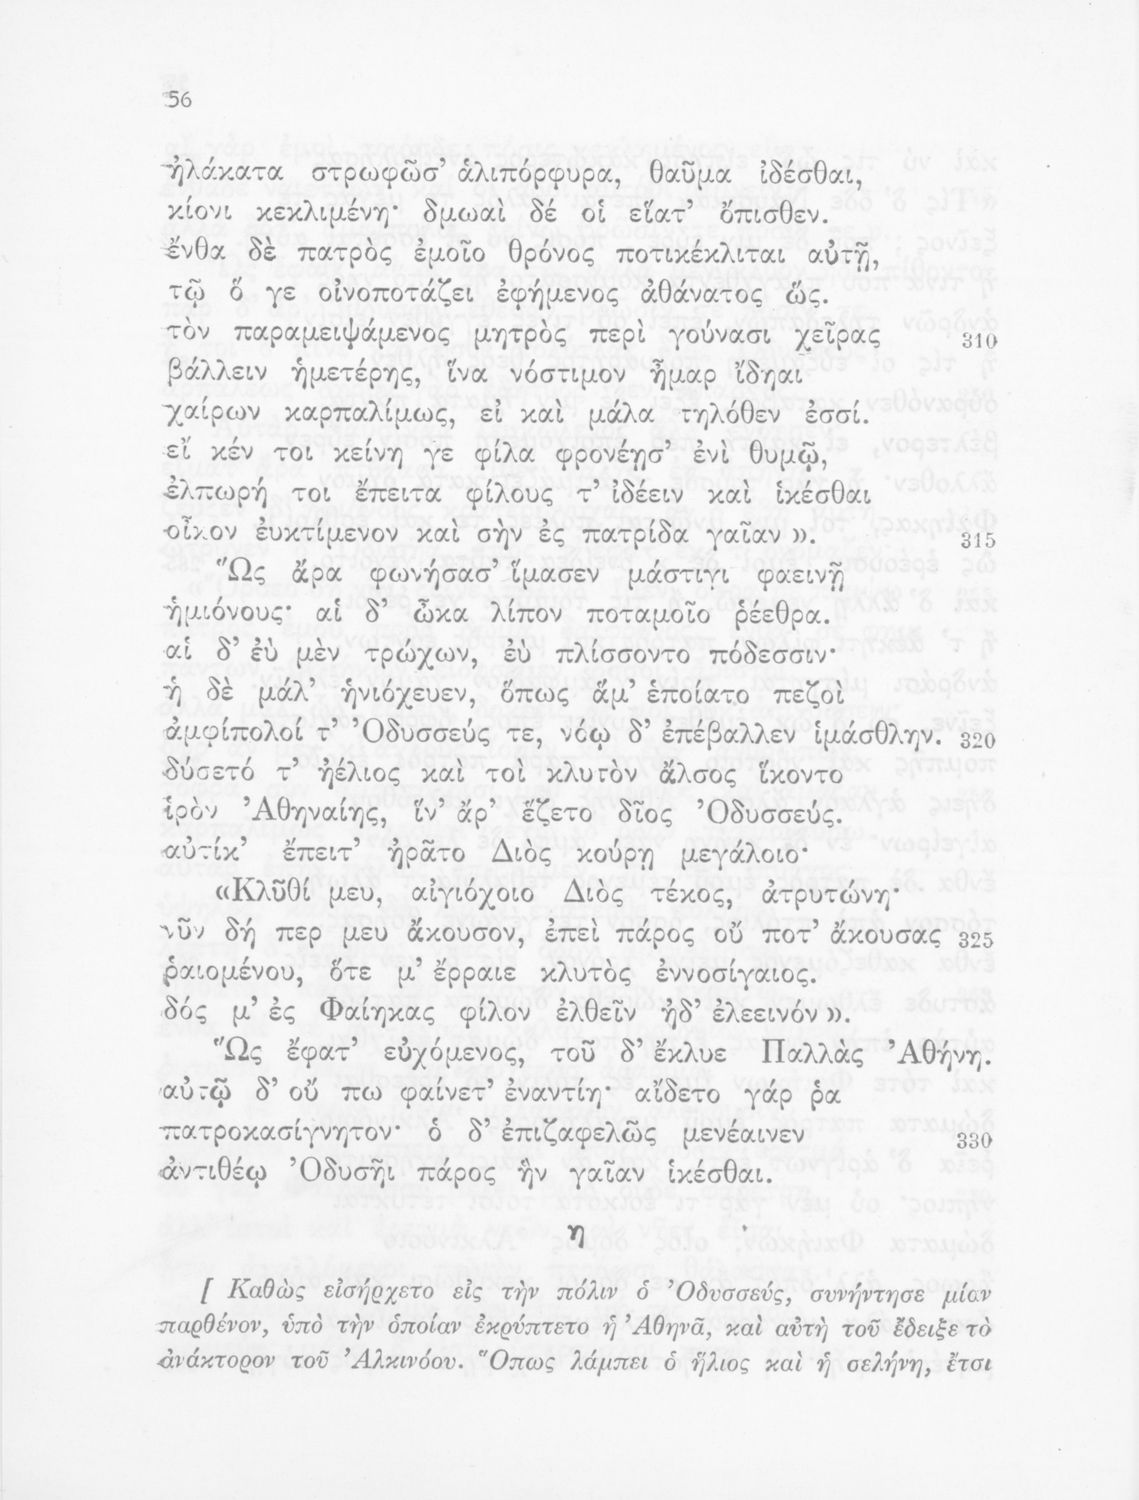 56
ἠλάκατα στρωφῶσ’ ἁλιπόρφυρα, θαῦμα ἰδέσθαι,
κίονι κεκλιμένη· δμωαὶ δέ οἱ εἵατ’ ὄπισθεν.
ἔνθα δὲ πατρὸς ἐμοῖο θρόνος ποτικέκλιται αὐτῇ,
τῷ ὅ γε οἰνοποτάζει ἐφήμενος ἀθάνατος ὥς.
τὸν παραμειψάμενος μητρὸς περὶ γούνασι χεῖρας 310
βάλλειν ἡμετέρης, ἵνα νόστιμον ἦμαρ ἴδηαι
χαίρων καρπαλίμως, εἰ καὶ μάλα τηλόθεν ἐσσί.
εἴ κέν τοι κείνη γε φίλα φρονέῃσ’ ἐνὶ θυμῷ,
ἐλπωρή τοι ἔπειτα φίλους τ’ ἰδέειν καὶ ἱκέσθαι
οἶκον ἐυκτίμενον καὶ σὴν ἐς πατρίδα γαῖαν ». 315
Ὣς ἄρα φωνήσασ’ ἵμασεν μάστιγι φαεινῇ
ἡμιόνους· αἱ δ’ ὦκα λίπον ποταμοῖο ῥέεθρα.
αἱ δ’ ἐὺ μὲν τρώχων, ἐὺ πλίσσοντο πόδεσσιν·
ἡ δὲ μάλ’ ἡνιόχευεν, ὅπως ἅμ’ ἑποίατο πεζοὶ
ἀμφίπολοί τ’ Ὀδυσσεύς τε, νόῳ δ’ ἐπέβαλλεν ἱμάσθλην. 320
δύσετό τ’ ἠέλιος καὶ τοὶ κλυτὸν ἄλσος ἵκοντο
ἱρὸν Ἀθηναίης, ἵν’ ἄρ’ ἕζετο δῖος Ὀδυσσεύς.
αὐτίκ’ ἔπειτ’ ἠρᾶτο Διὸς κούρῃ μεγάλοιο·
«Κλῦθί μευ, αἰγιόχοιο Διὸς τέκος, ἀτρυτώνη·
νῦν δή περ μευ ἄκουσον, ἐπεὶ πάρος οὔ ποτ’ ἄκουσας 325
ῥαιομένου, ὅτε μ’ ἔρραιε κλυτὸς ἐννοσίγαιος.
δός μ’ ἐς Φαίηκας φίλον ἐλθεῖν ἠδ’ ἐλεεινόν ».
Ὣς ἔφατ’ εὐχόμενος, τοῦ δ’ ἔκλυε Παλλὰς Ἀθήνη.
αὐτῷ δ’ οὔ πω φαίνετ’ ἐναντίη· αἴδετο γάρ ῥα
πατροκασίγνητον· ὁ δ’ ἐπιζαφελῶς μενέαινεν 330
ἀντιθέῳ Ὀδυσῆι πάρος ἣν γαῖαν ἱκέσθαι.
η
[ Καθὼς εἰσήρχετο εἰς τὴν πόλιν ὁ Ὀδυσσεύς, συνήντησε μίαν
παρθένον, ὑπὸ τὴν ὁποίαν ἐκρύπτετο ἡ Ἀθηνᾶ, καὶ αὐτὴ τοῦ ἔδειξε τὸ
ἀνάκτορον τοῦ Ἀλκινόου. Ὅπως λάμπει ὁ ἥλιος καὶ ἡ σελήνη, ἔτσι